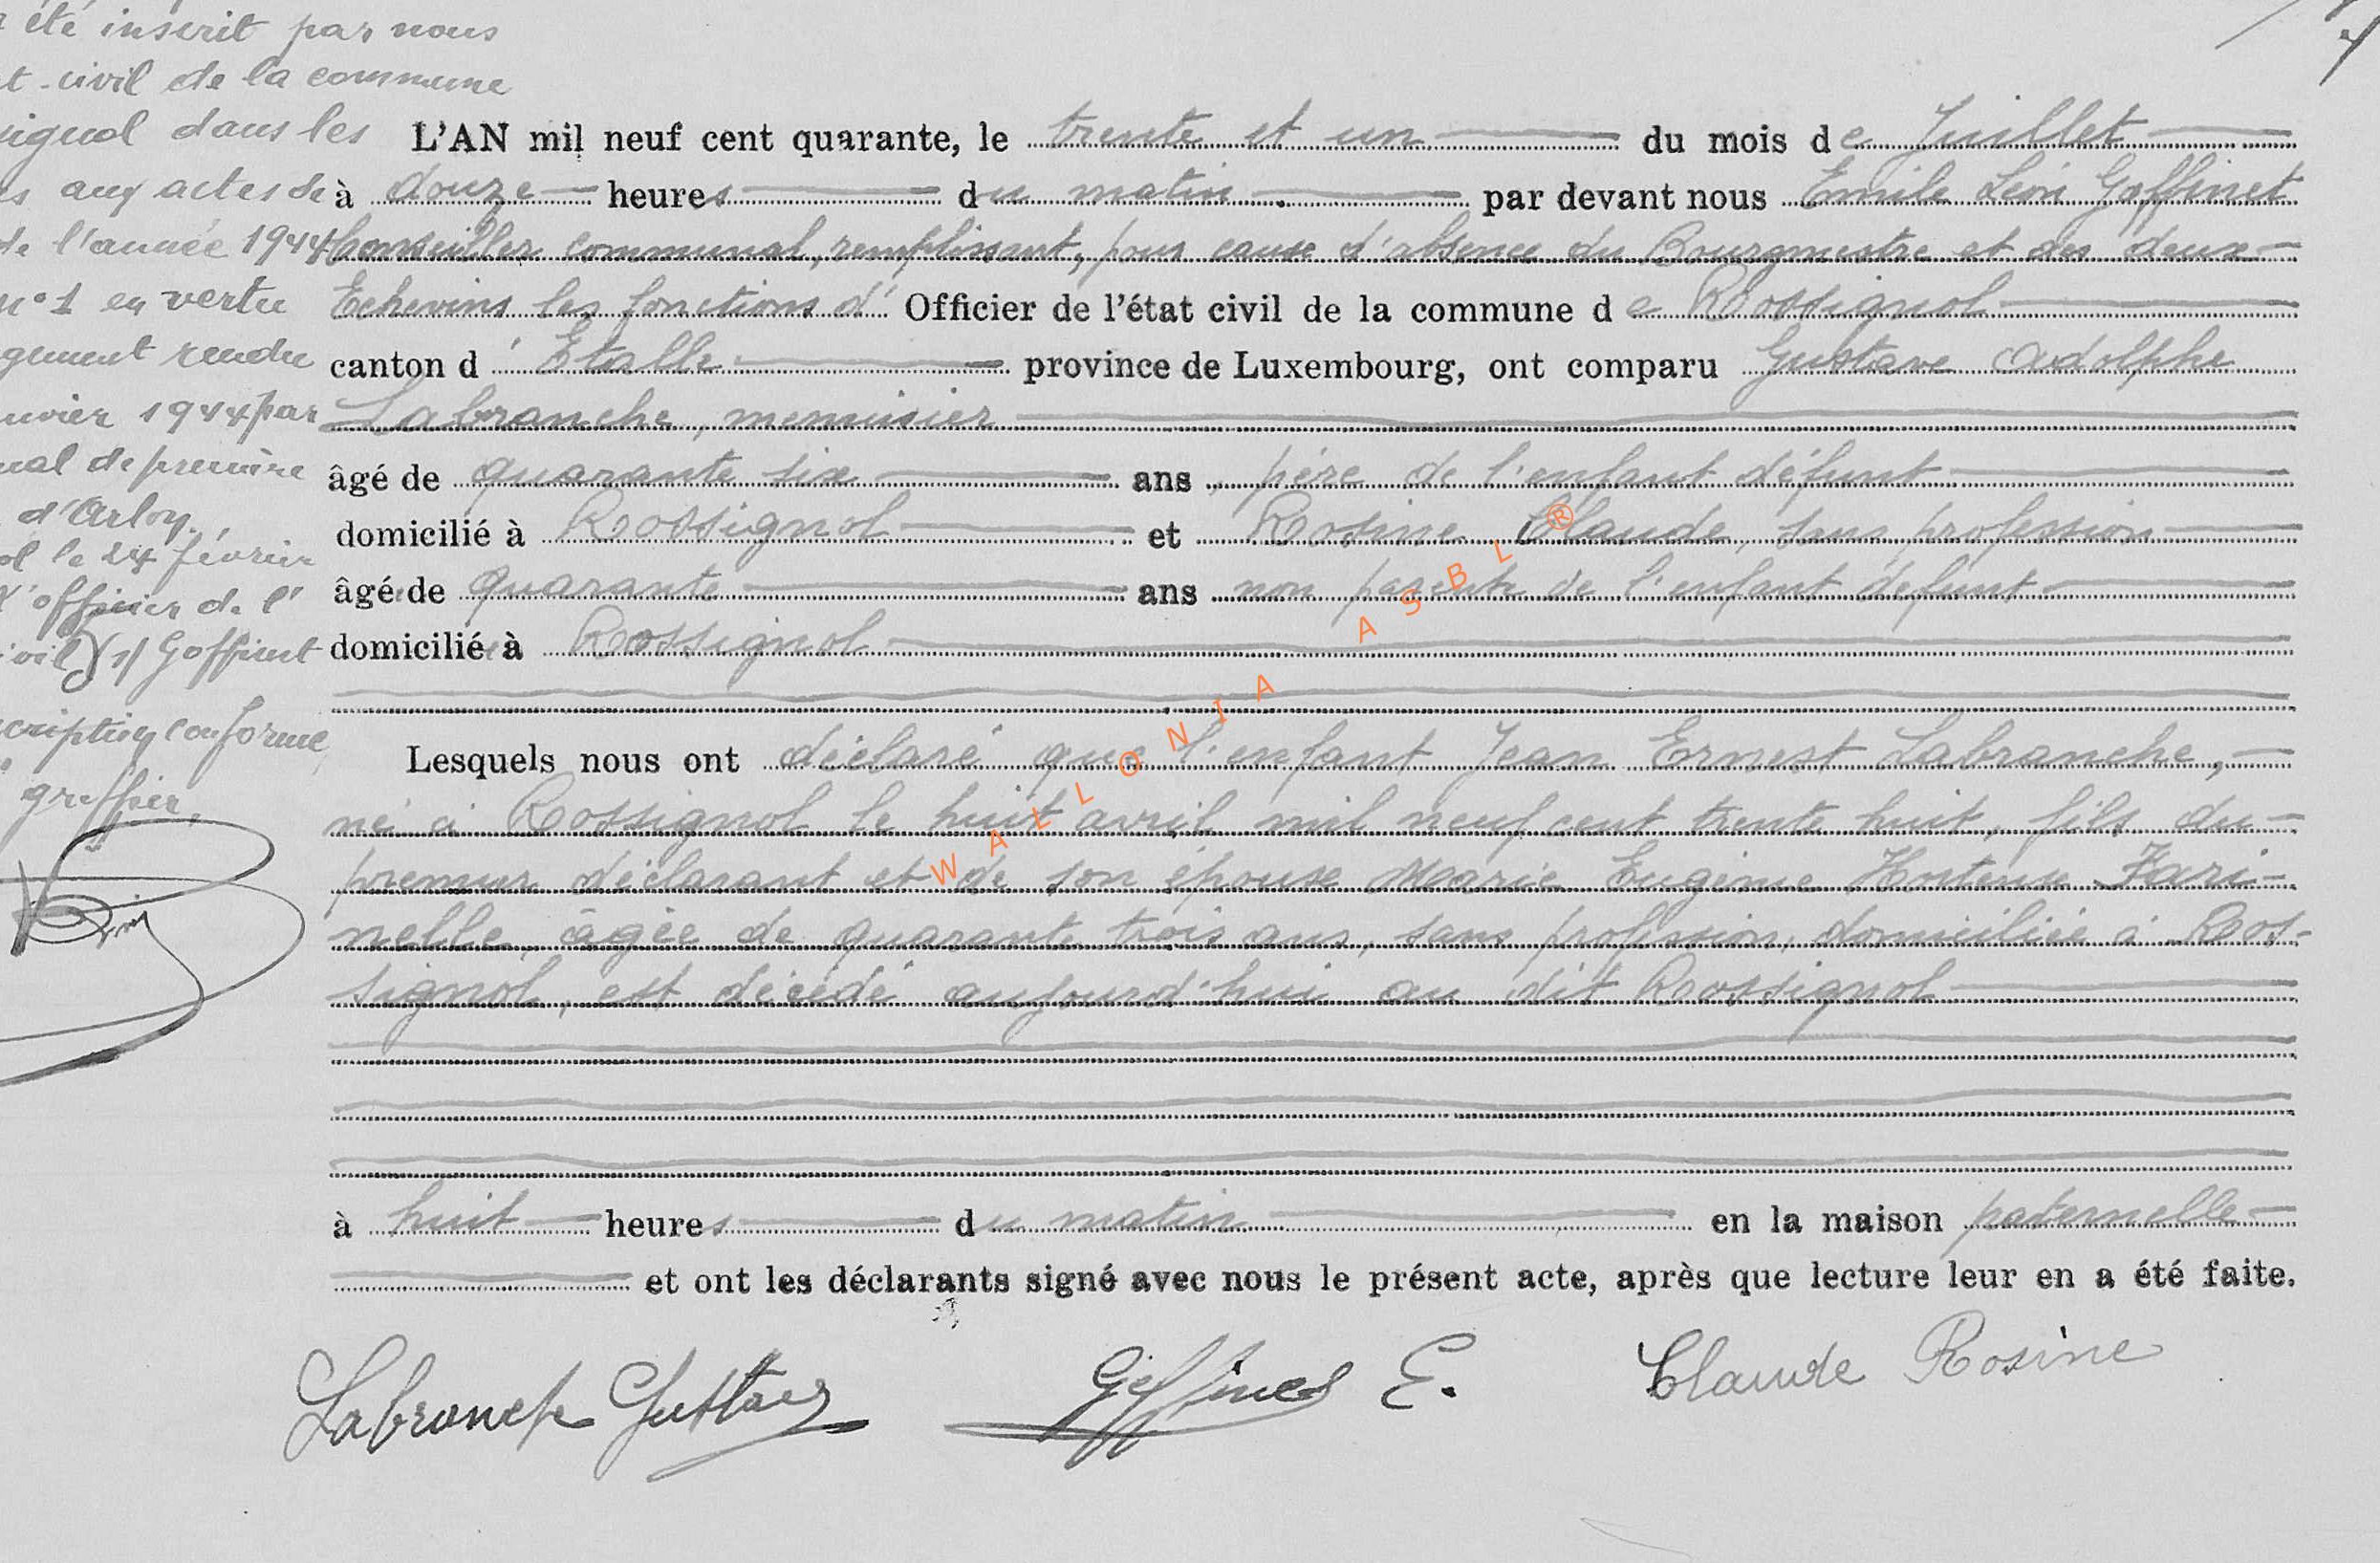 été inscrit par nous
t civil de la commune
ignol dans les
s aux actes de
de l'année 1944
n° 1 en vertu
gement rendu
nvier 1944 par
nal de première
d'Arlon.
ol le 24 février
L'officier de l'
ivil) (s/ Goffinet
cription conforme,
greffier,
L'AN mil neuf cent quarante, le trente et un du mois de Juillet
à douze heures du matin par devant nous Emile Léon Goffinet
Conseiller communal, remplissant, pour cause d'absence du Bourgmestre et des deux
Echevins les fonctions d' Officier de l'état civil de la commune de Rossignol
canton d'Etalle province de Luxembourg, ont comparu Gustave Adolphe
Labranche, menuisier
âgé de quarante six ans, père de l'enfant défunt
domicilié à Rossignol et Rosine Claude, sans profession
âgé de quarante ans non parente de l'enfant défunt
domiciliée à Rossignol
Lesquels nous ont déclaré que l'enfant Jean Ernest Labranche,
né à Rossignol le huit avril mil neuf cent trente huit, fils du
premier déclarant et de son épouse Marie Eugénie Hortense Fari-
nelle, âgée de quarante trois ans, sans profession, domiciliée à Ros-
signol, est décédé aujourd'hui au dit Rossignol
à huit heures du matin en la maison paternelle
et ont les déclarants signé avec nous le présent acte, après que lecture leur en a été faite.
Labranche Gustave Goffinet E. Claude Rosine
WALLONIA ASBL ®